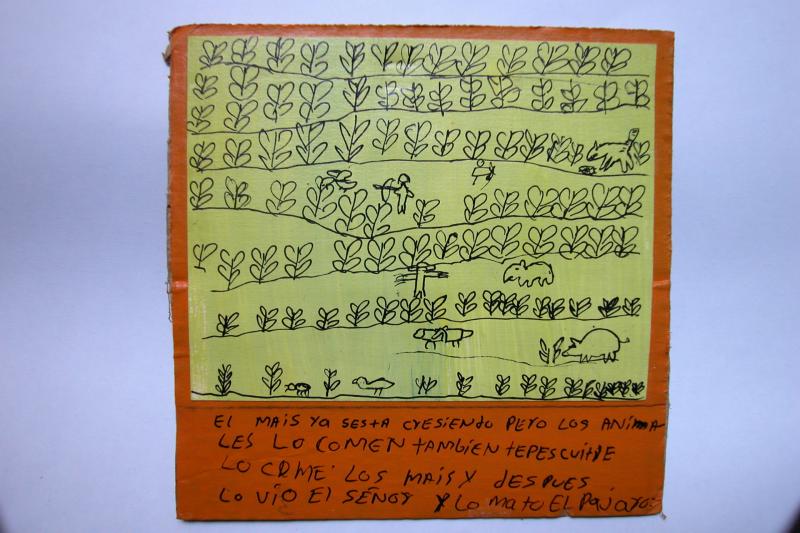 El MAiS YA SESTA CRESiENdo PERO LOS ANiMA
LES LO COMEN tAMbiEN tEPESCUitlE
LO COME LOS MAiS Y dESPUES
Lo ViO El SEÑOR Y Lo MAtO EL PAJARO